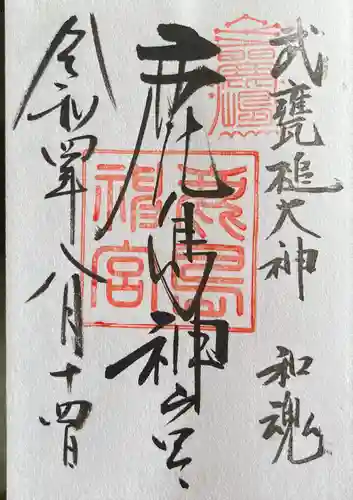 武甕槌大神
和魂
鹿島神宮
鹿島
神宮
令和四年八月十四日